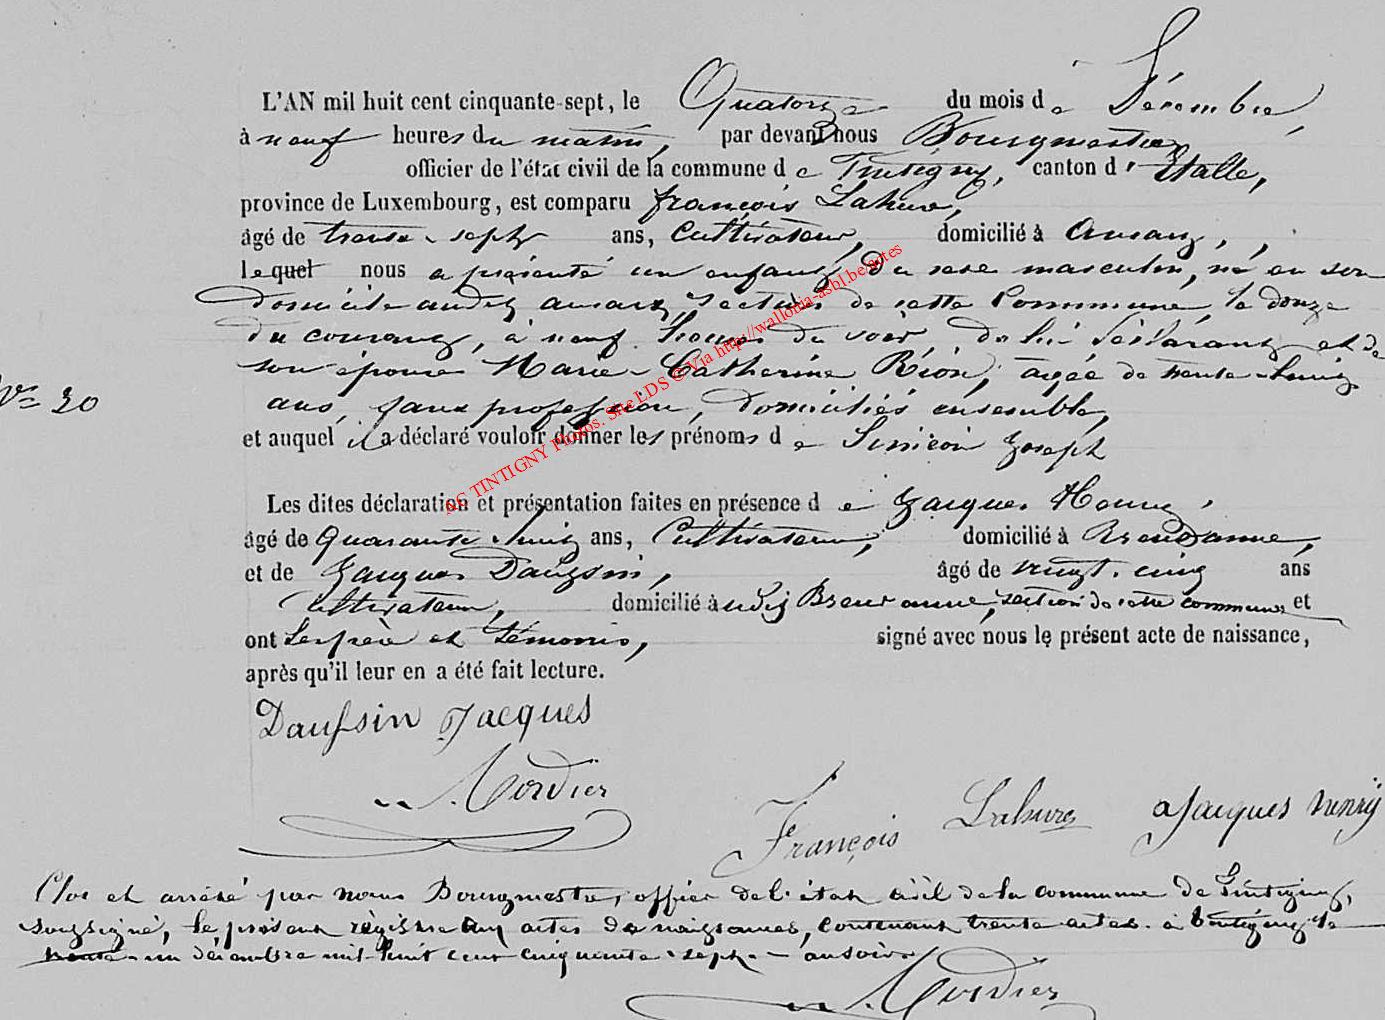 L'AN mil huit cent cinquante-sept, le Quatorze du mois de Décembre,
à neuf heures du matin, par devant nous Bourgmestre
officier de l'état civil de la commune de Tintigny, canton d'Etalle,
province de Luxembourg, est comparu françois Lahure,
âgé de trente-sept ans, Cultivateur, domicilié à Ansart,
lequel nous a présenté un enfant du sexe masculin, né en son
domicile audit ansart, section de cette Commune, le douze
du courant, à neuf heures du soir, de lui déclarant et de
son épouse Marie-Catherine Rion, agée de trente-huit
Nº 30
ans, sans profession, domiciliés ensemble,
et auquel il a déclaré vouloir donner les prénoms de Siméon Joseph
Les dites déclaration et présentation faites en présence de Jacques Henry,
âgé de Quarante huit ans, Cultivateur, domicilié à Breuvanne,
et de Jacques Daussin, âgé de vingt-cinq ans
Cultivateur, domicilié à udit Breuvanne, section de cette commune et
ont les père et témoins, signé avec nous le présent acte de naissance,
après qu'il leur en a été fait lecture.
Daussin Jacques
Mordier
François Lahure Jacques henry
Clos et arrêté par nous Bourgmestre, officier de l'état civil de la commune de Tintigny,
soussigné, le présent régistre aux actes de naissances, contenant trente actes. à Tintigny le
trente-un décembre mil-huit cent cinquante-sept - au soir.
Mordier
AC TINTIGNY Photos. Site LDS © Via http://wallonia-asbl.be/actes